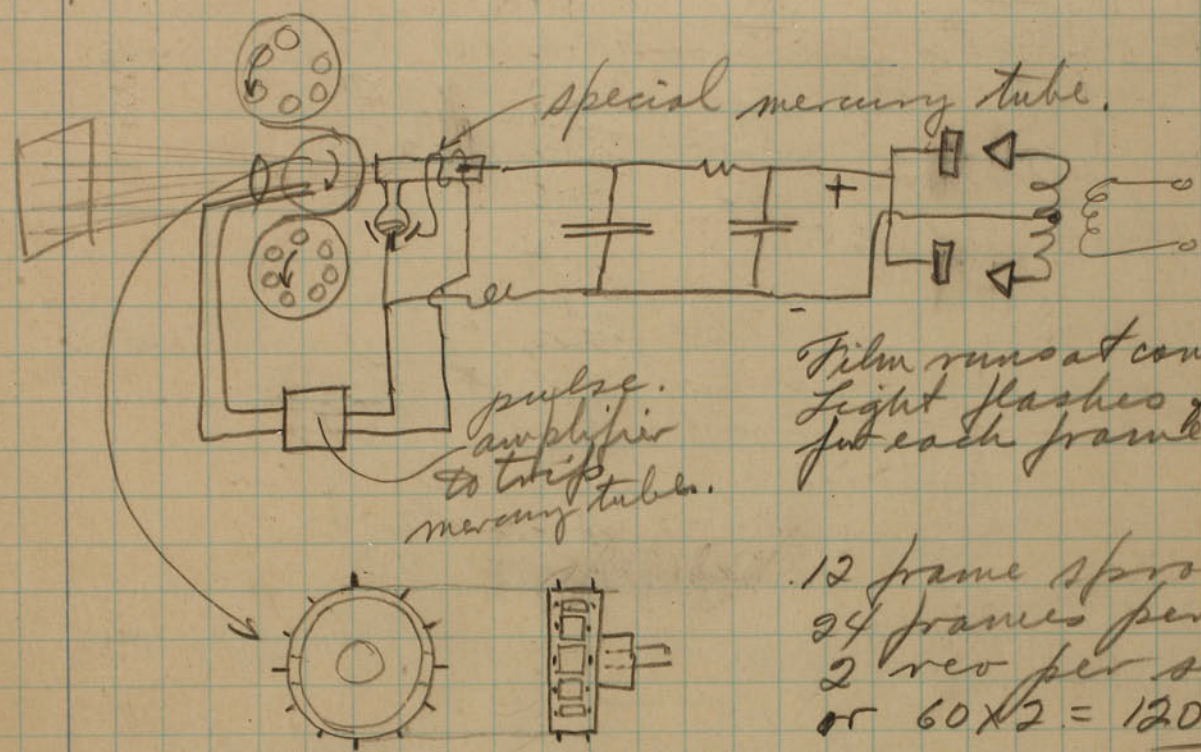 special mercury tube.
+
-
Film runs at con
Light flashes
for each frame
pulse.
amplifier
to trip
mercury tube.
12 frame spro
24 frames per
2 rev per s
or 60 x 2 = 120